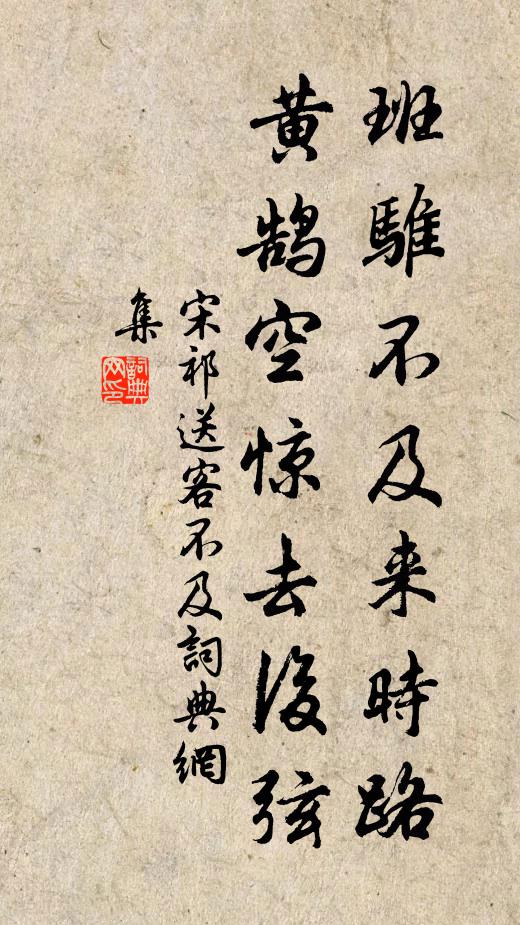 班騅不及来時路
黄鹄空惊去後弦
宋祁送客不及詞典網
集
詞典
网印